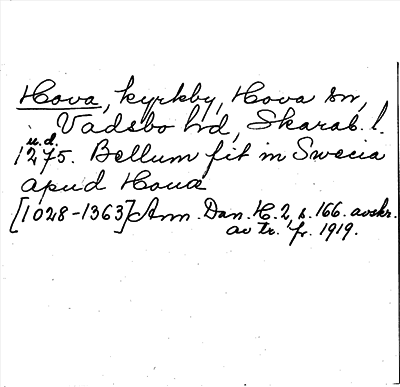 Hova, kyrkby, Hova sn,
Vadsbo hd, Skarab. l.
u.d.
1275. Bellum fit in Swecia
apud Houa
[1028-1363] Ann. Dan. H. 2, s. 166. avskr.
av tr. fr. 1919.